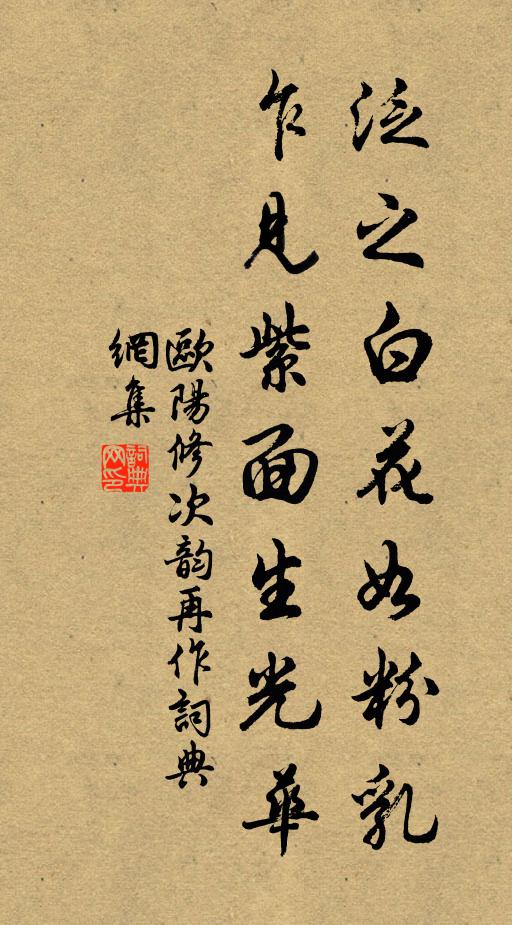 泛之白花如粉乳
乍見紫面生光華
歐陽修次韵再作詞典
網集
詞典網印